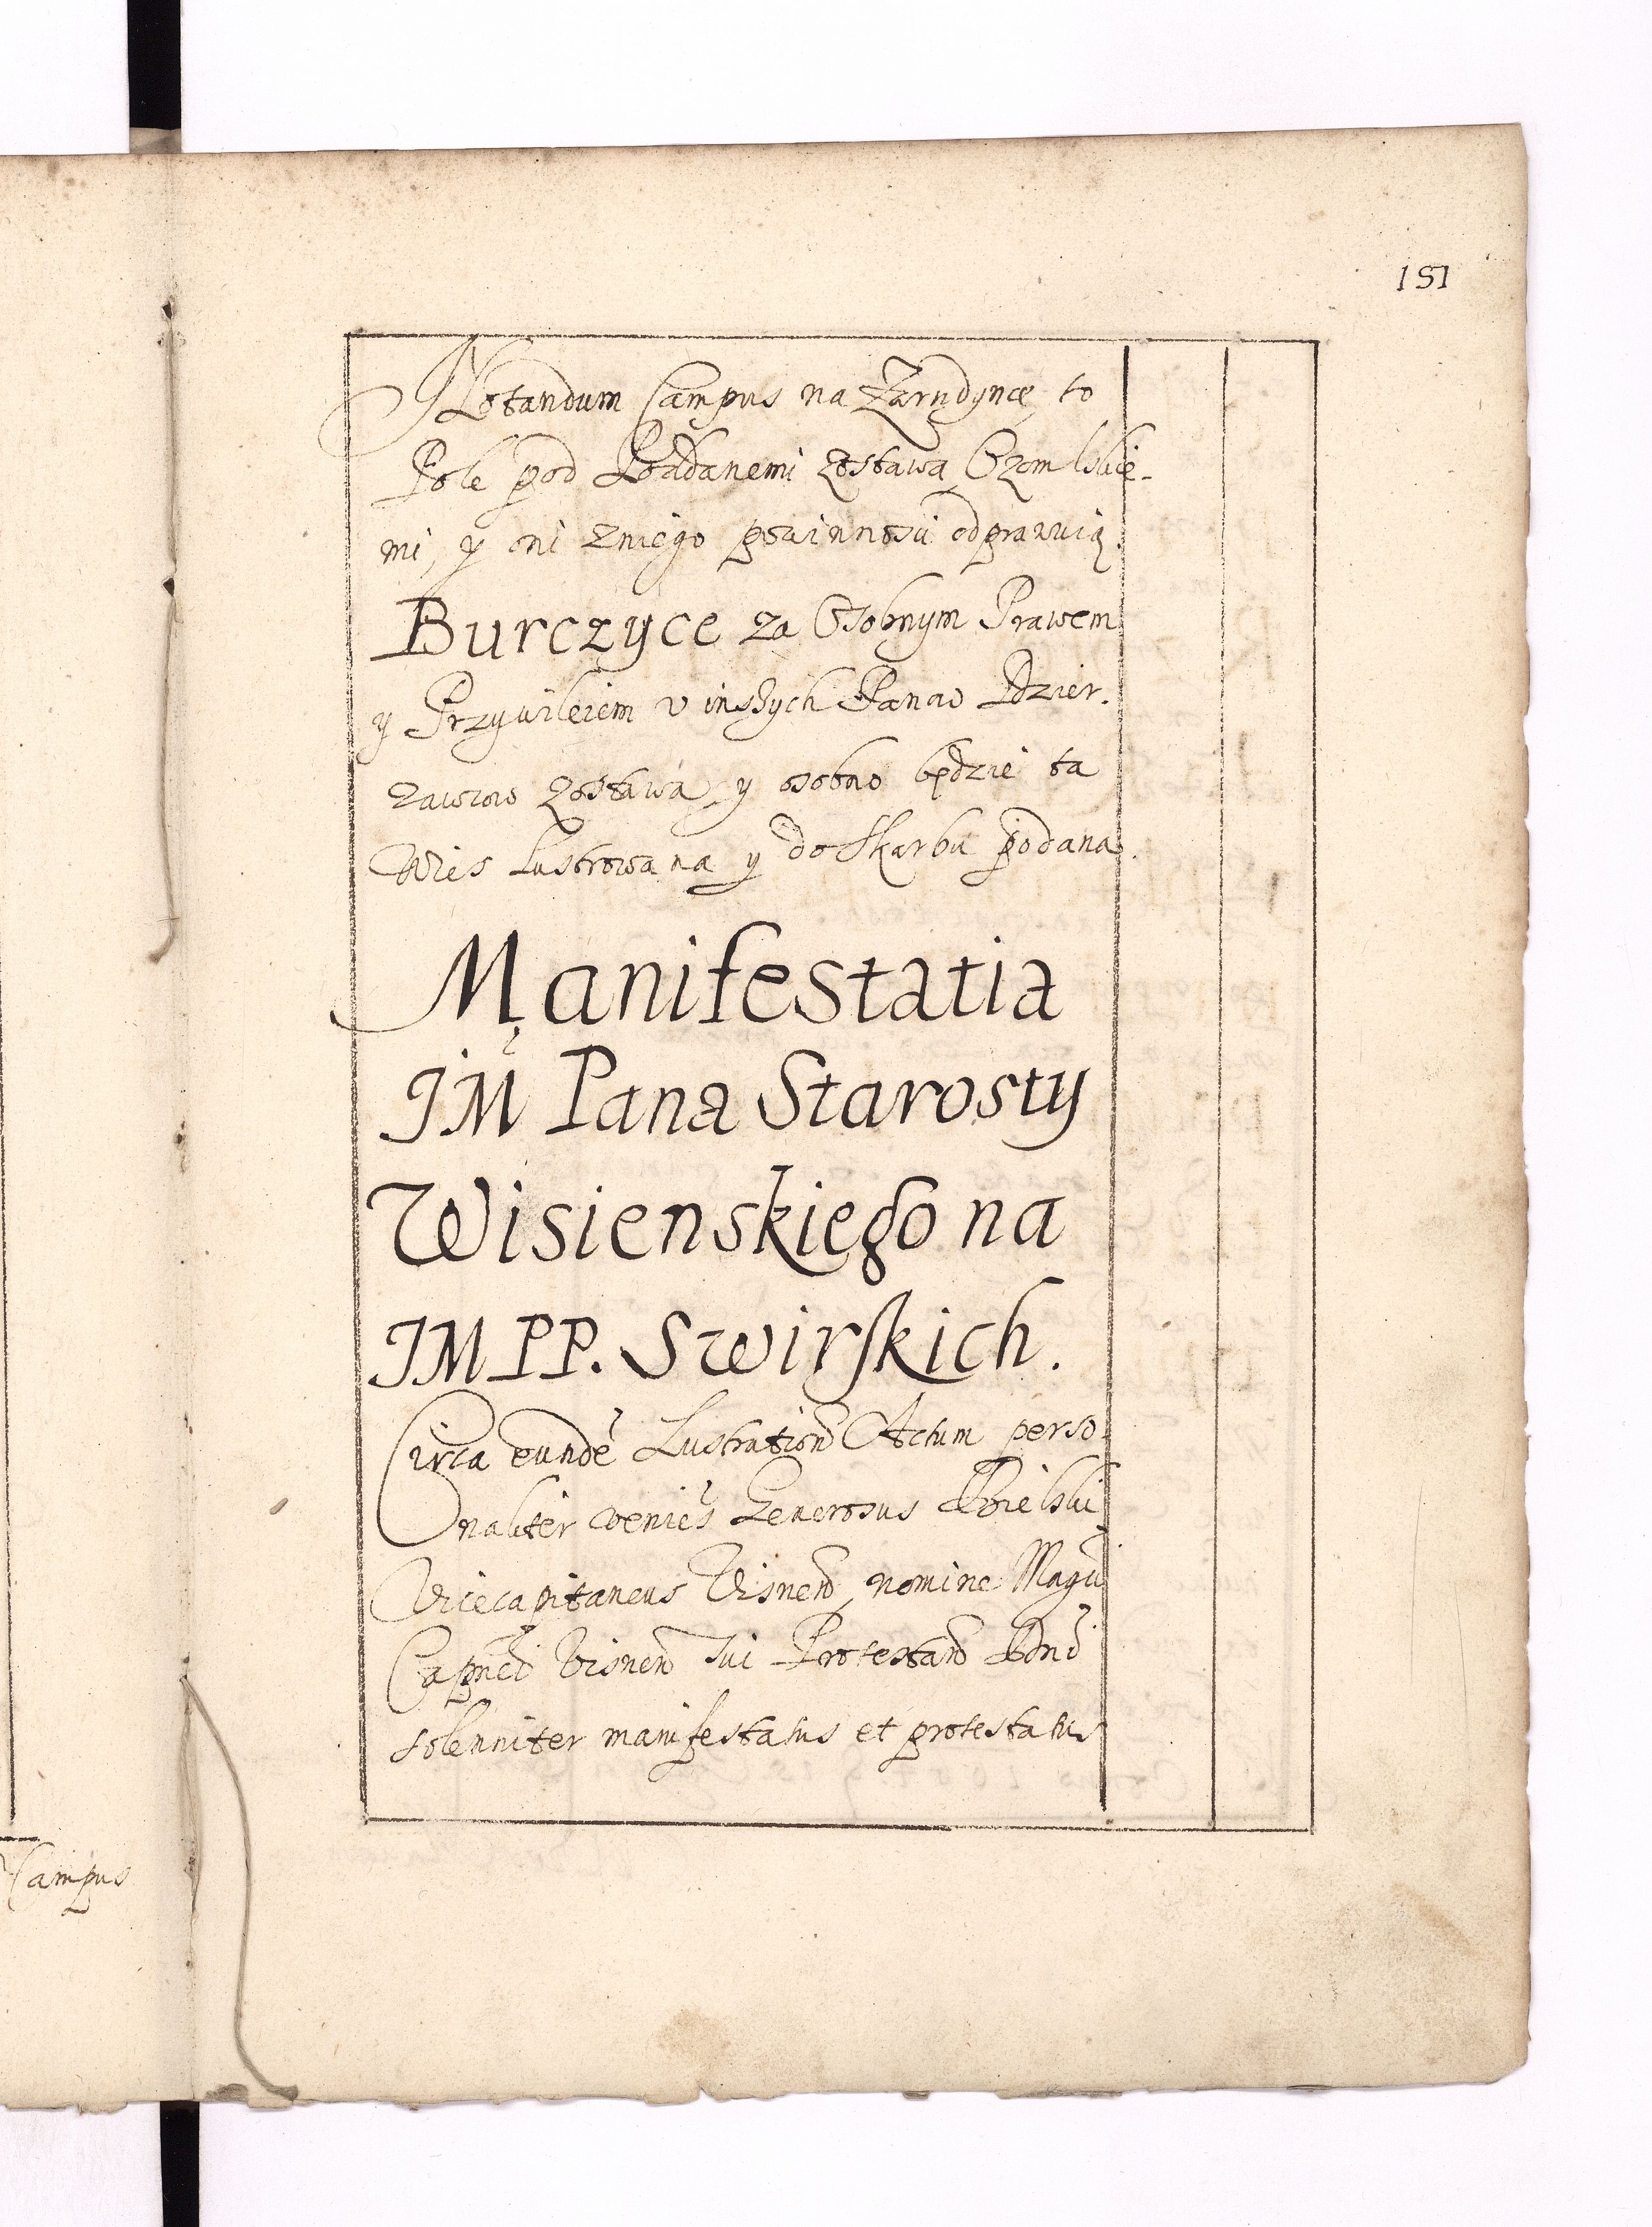 151
Notandum Campus na Zarudynce, to
Pole pod Poddanemi zostawa Czomlskie-
mi, y oni zniego powinnosci odprawuią.
Burczyce za Osobnym Prawem
y Przywileiem v inszych Panow Dzier.
zawcow zostawa, y osobno będzie ta
Wies Lustrowana y do Skarbu podana.
Manifestatia
JM Pana Starosty
Wisienskiego na
JM PP. Swirskich.
Circa eundē Lustration Actum perso
naliter veniēs Generosus Bielski
Vicecapitaneus Visnen nomine Magci
Capnei Visnen sui Protestan Dni
solenniter manifestatus et protestatus
Campus